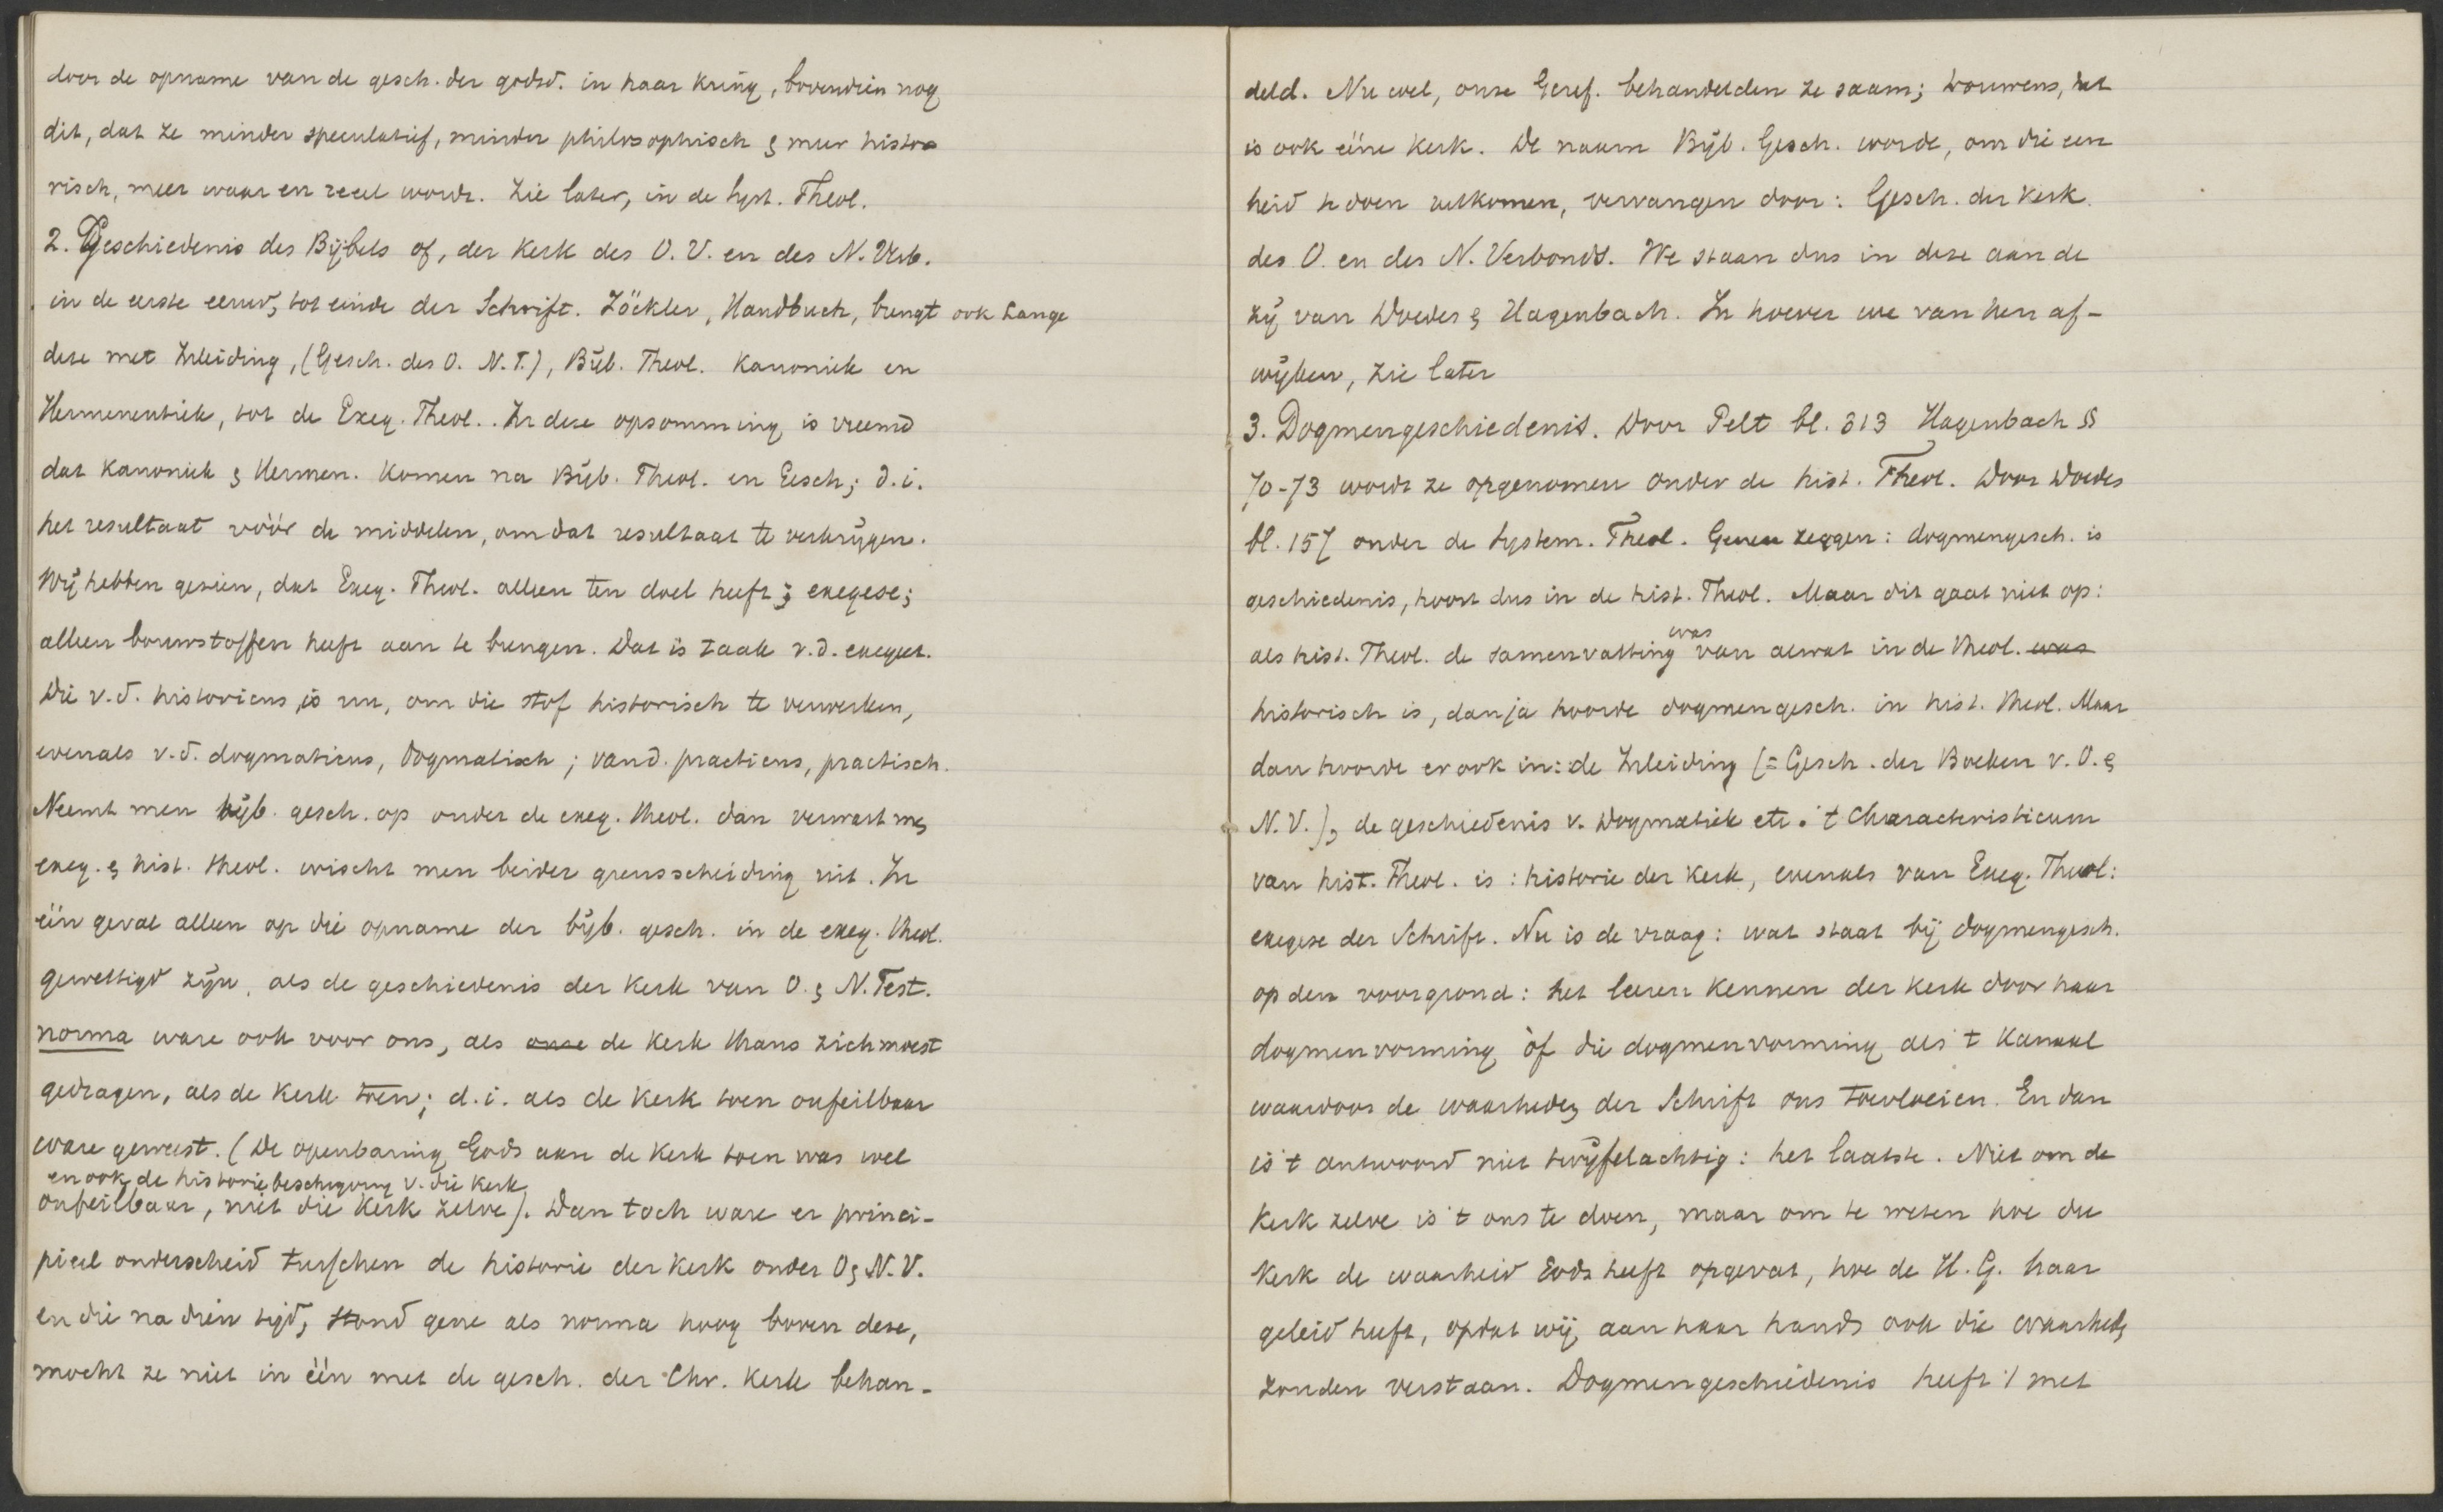 door de opname van de gesch. der godsd. in haar kring, bovendien nog
dit, dat ze minder speculatief, minder philosophisch & meer histo
risch, meer waar en reeel wordt. Zie later, in de Syst. Theol.
2. Geschiedenis des Bijbels of, der Kerk des O. V. en des N. Verb.
in de eerste eeuw, tot einde der Schrift. Zöckler, Handbuch, brengt ook Lange
deze met Inleiding, (Gesch. des O. N. T.), Bijb. Theol. Kanoniek en
Hermeneutiek, tot de Exeg. Theol.. In deze opsomming is vreemd
dat Kanoniek & Hermen. komen na Bijb. Theol. en Gesch; d.i.
het resultaat vóór de middelen, om dat resultaat te verkrijgen.
Wij hebben gezien, dat Exeg. Theol. alleen ten doel heeft: exegese;
alleen bouwstoffen heeft aan te brengen. Dat is taak v.d. exegeet.
Die v.d. historicus is nu, om die stof historisch te verwerken,
evenals v.d. dogmaticus, dogmatisch; van d. practicus, practisch.
Neemt men bijb. gesch. op onder de exeg. theol. dan verwart men
exeg. & hist. theol. wischt men beider grensscheiding uit. In
één geval alleen op die opname der bijb. gesch. in de exeg. theol.
gewettigd zijn, als de geschiedenis der Kerk van O. & N. Test.
norma ware ook voor ons, als onze de Kerk thans zich moest
gedragen, als de Kerk toen; d.i. als de Kerk toen onfeilbaar
ware geweest. (De openbaring Gods aan de Kerk toen was wel
en ook de historiebeschrijving v. die Kerk
onfeilbaar, niet die Kerk zelve). Dan toch ware er princi-
pieel onderscheid tusschen de historie der Kerk onder O & N. V.
en die na dien tijd, stond gene als norma hoog boven deze,
mocht ze niet in één met de gesch. der Chr. Kerk behan-
deld. Nu wel, onze Geref. behandelden ze saam; trouwens, het
is ook ééne Kerk. De naam Bijb. Gesch. worde, om die een
heid te doen uitkomen, vervangen door: Gesch. der Kerk
des O. en des N. Verbonds. We staan dus in deze aan de
zij van Doedes & Hagenbach. In hoever we van hen af-
wijken, zie later
3. Dogmengeschiedenis. Door Pelt bl. 313 Hagenbach §§
70-73 wordt ze opgenomen onder de hist. Theol. Door Doedes
bl. 157 onder de System. Theol. Genen zeggen: dogmengesch. is
geschiedenis, hoort dus in de hist. Theol. Maar dit gaat niet op:
was
als hist. Theol. de samenvatting van alwat in de theol. was
historisch is, dan ja hoorde dogmengesch. in hist. theol. Maar
dan hoorde er ook in: de Inleiding (= Gesch. der Boeken v. O. &
N. V.), de geschiedenis v. dogmatiek etc. 't Characteristicum
van hist. Theol. is: historie der Kerk, evenals van Exeg. Theol:
exegese der Schrift. Nu is de vraag: wat staat bij dogmengesch.
op den voorgrond: het leeren kennen der kerk door haar
dogmenvorming òf die dogmenvorming als 't kanaal
waardoor de waarheden der Schrift ons toevloeien. En dan
is 't antwoord niet twijfelachtig: het laatste. Niet om de
Kerk zelve is 't ons te doen, maar om te weten hoe die
Kerk de waarheid Gods heeft opgevat, hoe de H. G. haar
geleid heeft, opdat wij aan haar hand ook die waarheid
zouden verstaan. Dogmengeschiedenis heeft 't met